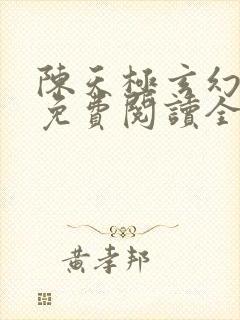 陳天極玄幻
免費閱讀全
黃孝邦